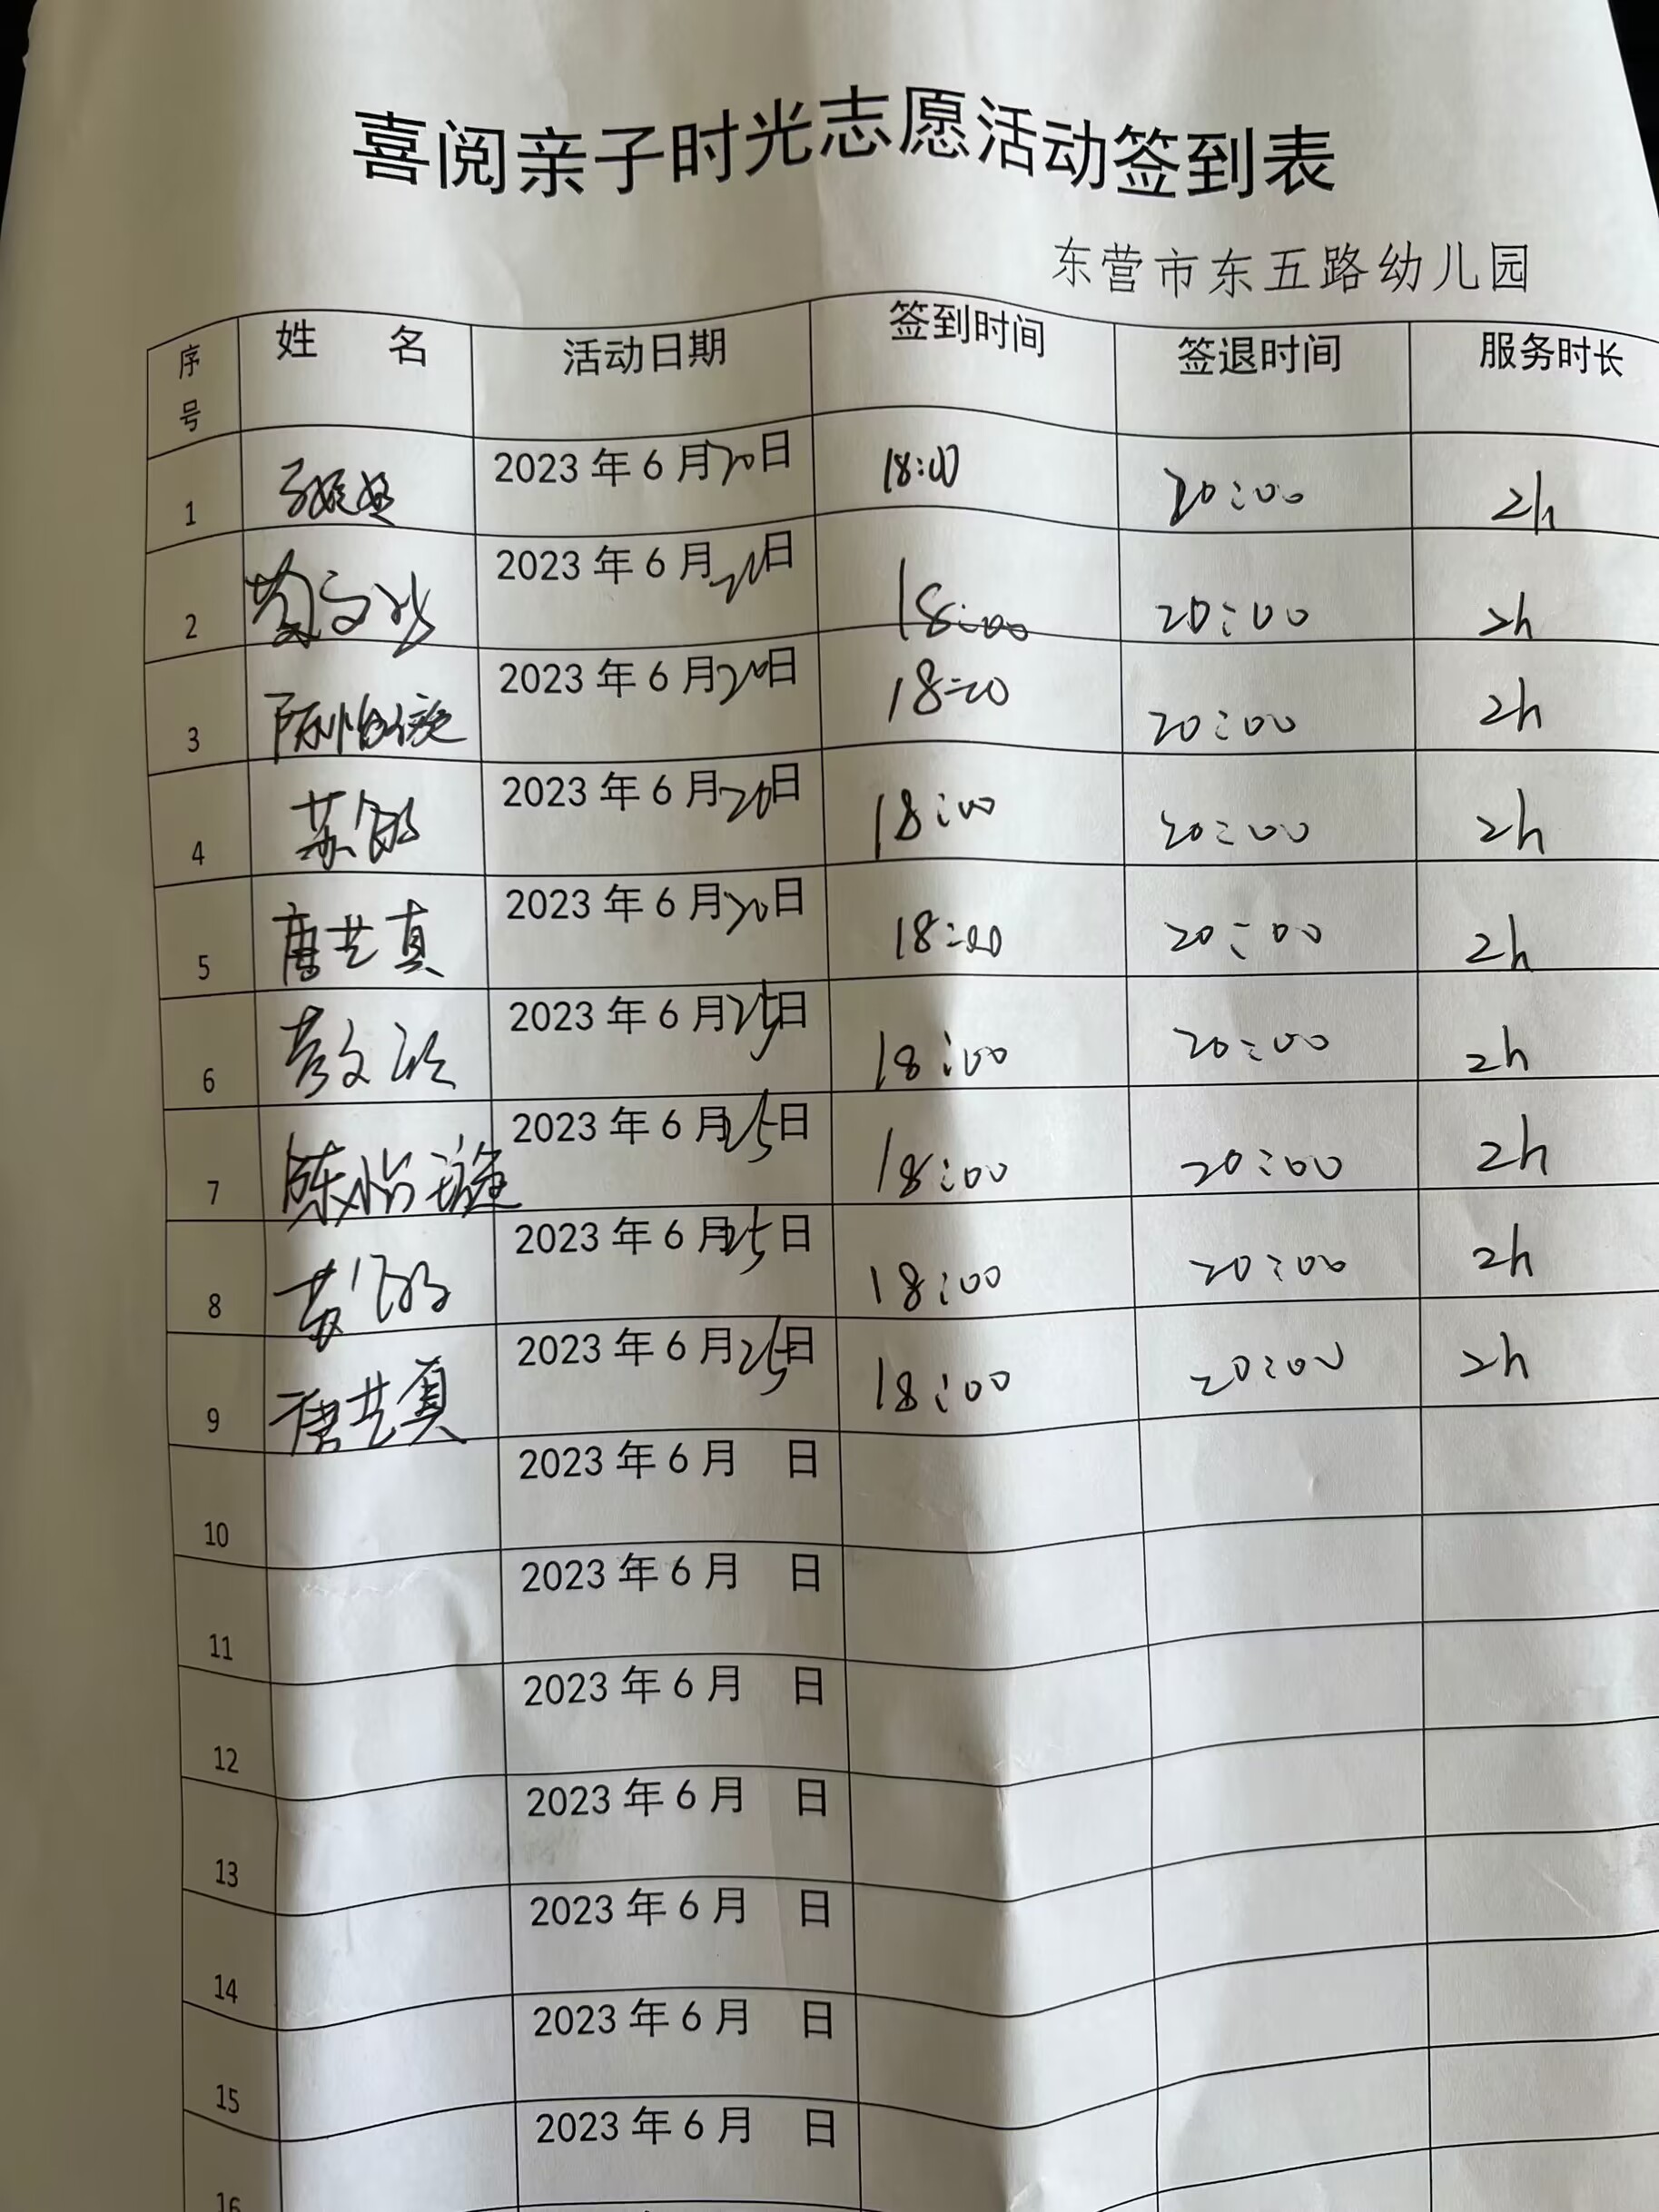 喜阅亲子时光志愿活动签到表
东营市东五路幼儿园
序号 姓 名 活动日期 签到时间 签退时间 服务时长
1 2023年6月20日 18:00 20:00 2h
2 2023年6月20日 18:00 20:00 2h
3 陈怡璇 2023年6月20日 18:00 20:00 2h
4 2023年6月20日 18:00 20:00 2h
5 唐艺真 2023年6月20日 18:00 20:00 2h
6 2023年6月25日 18:00 20:00 2h
7 陈怡璇 2023年6月25日 18:00 20:00 2h
8 2023年6月25日 18:00 20:00 2h
9 唐艺真 2023年6月25日 18:00 20:00 2h
10 2023年6月 日
11 2023年6月 日
12 2023年6月 日
13 2023年6月 日
14 2023年6月 日
15 2023年6月 日
16 2023年6月 日